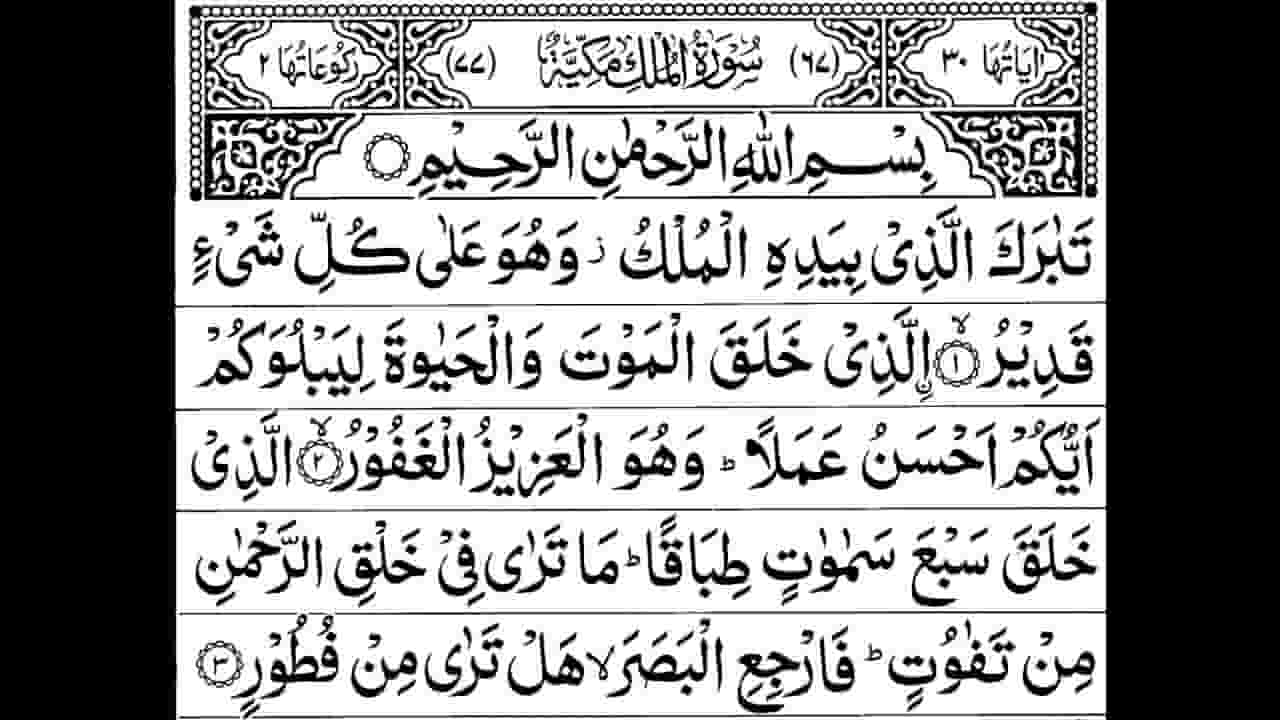 اٰيَاتُهَا ٣٠ (٦٧) سُوْرَةُ الْمُلْكِ مَكِّيَّةٌ (٧٧) رُكُوْعَاتُهَا ٢
بِسْمِ اللّٰهِ الرَّحْمٰنِ الرَّحِيْمِ ۝
تَبٰرَكَ الَّذِىْ بِيَدِهِ الْمُلْكُ ؗ وَهُوَ عَلٰى كُلِّ شَىْءٍ
قَدِيْرُ ۙ﴿١﴾ ۨالَّذِىْ خَلَقَ الْمَوْتَ وَالْحَيٰوةَ لِيَبْلُوَكُمْ
اَيُّكُمْ اَحْسَنُ عَمَلًا ؕ وَهُوَ الْعَزِيْزُ الْغَفُوْرُ ۙ﴿٢﴾ الَّذِىْ
خَلَقَ سَبْعَ سَمٰوٰتٍ طِبَاقًا ؕ مَا تَرٰى فِىْ خَلْقِ الرَّحْمٰنِ
مِنْ تَفٰوُتٍ ؕ فَارْجِعِ الْبَصَرَ ۙ هَلْ تَرٰى مِنْ فُطُوْرٍ ﴿٣﴾